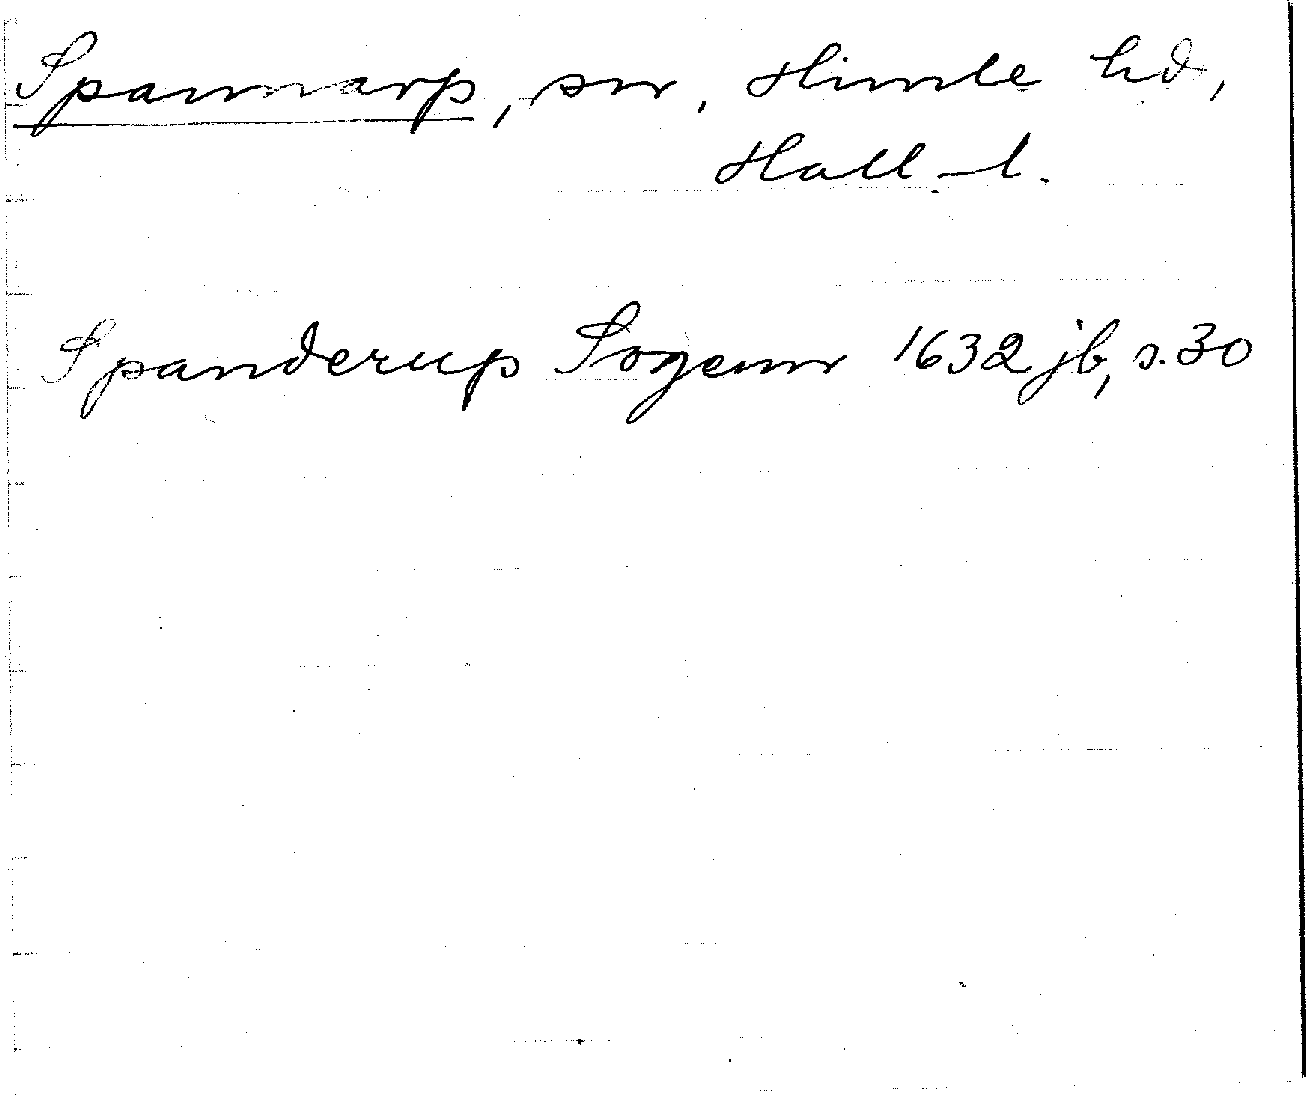 Spannarp, sn, Himle hd,
Hall. l.
Spanderup Sogenn 1632 jb, s. 30